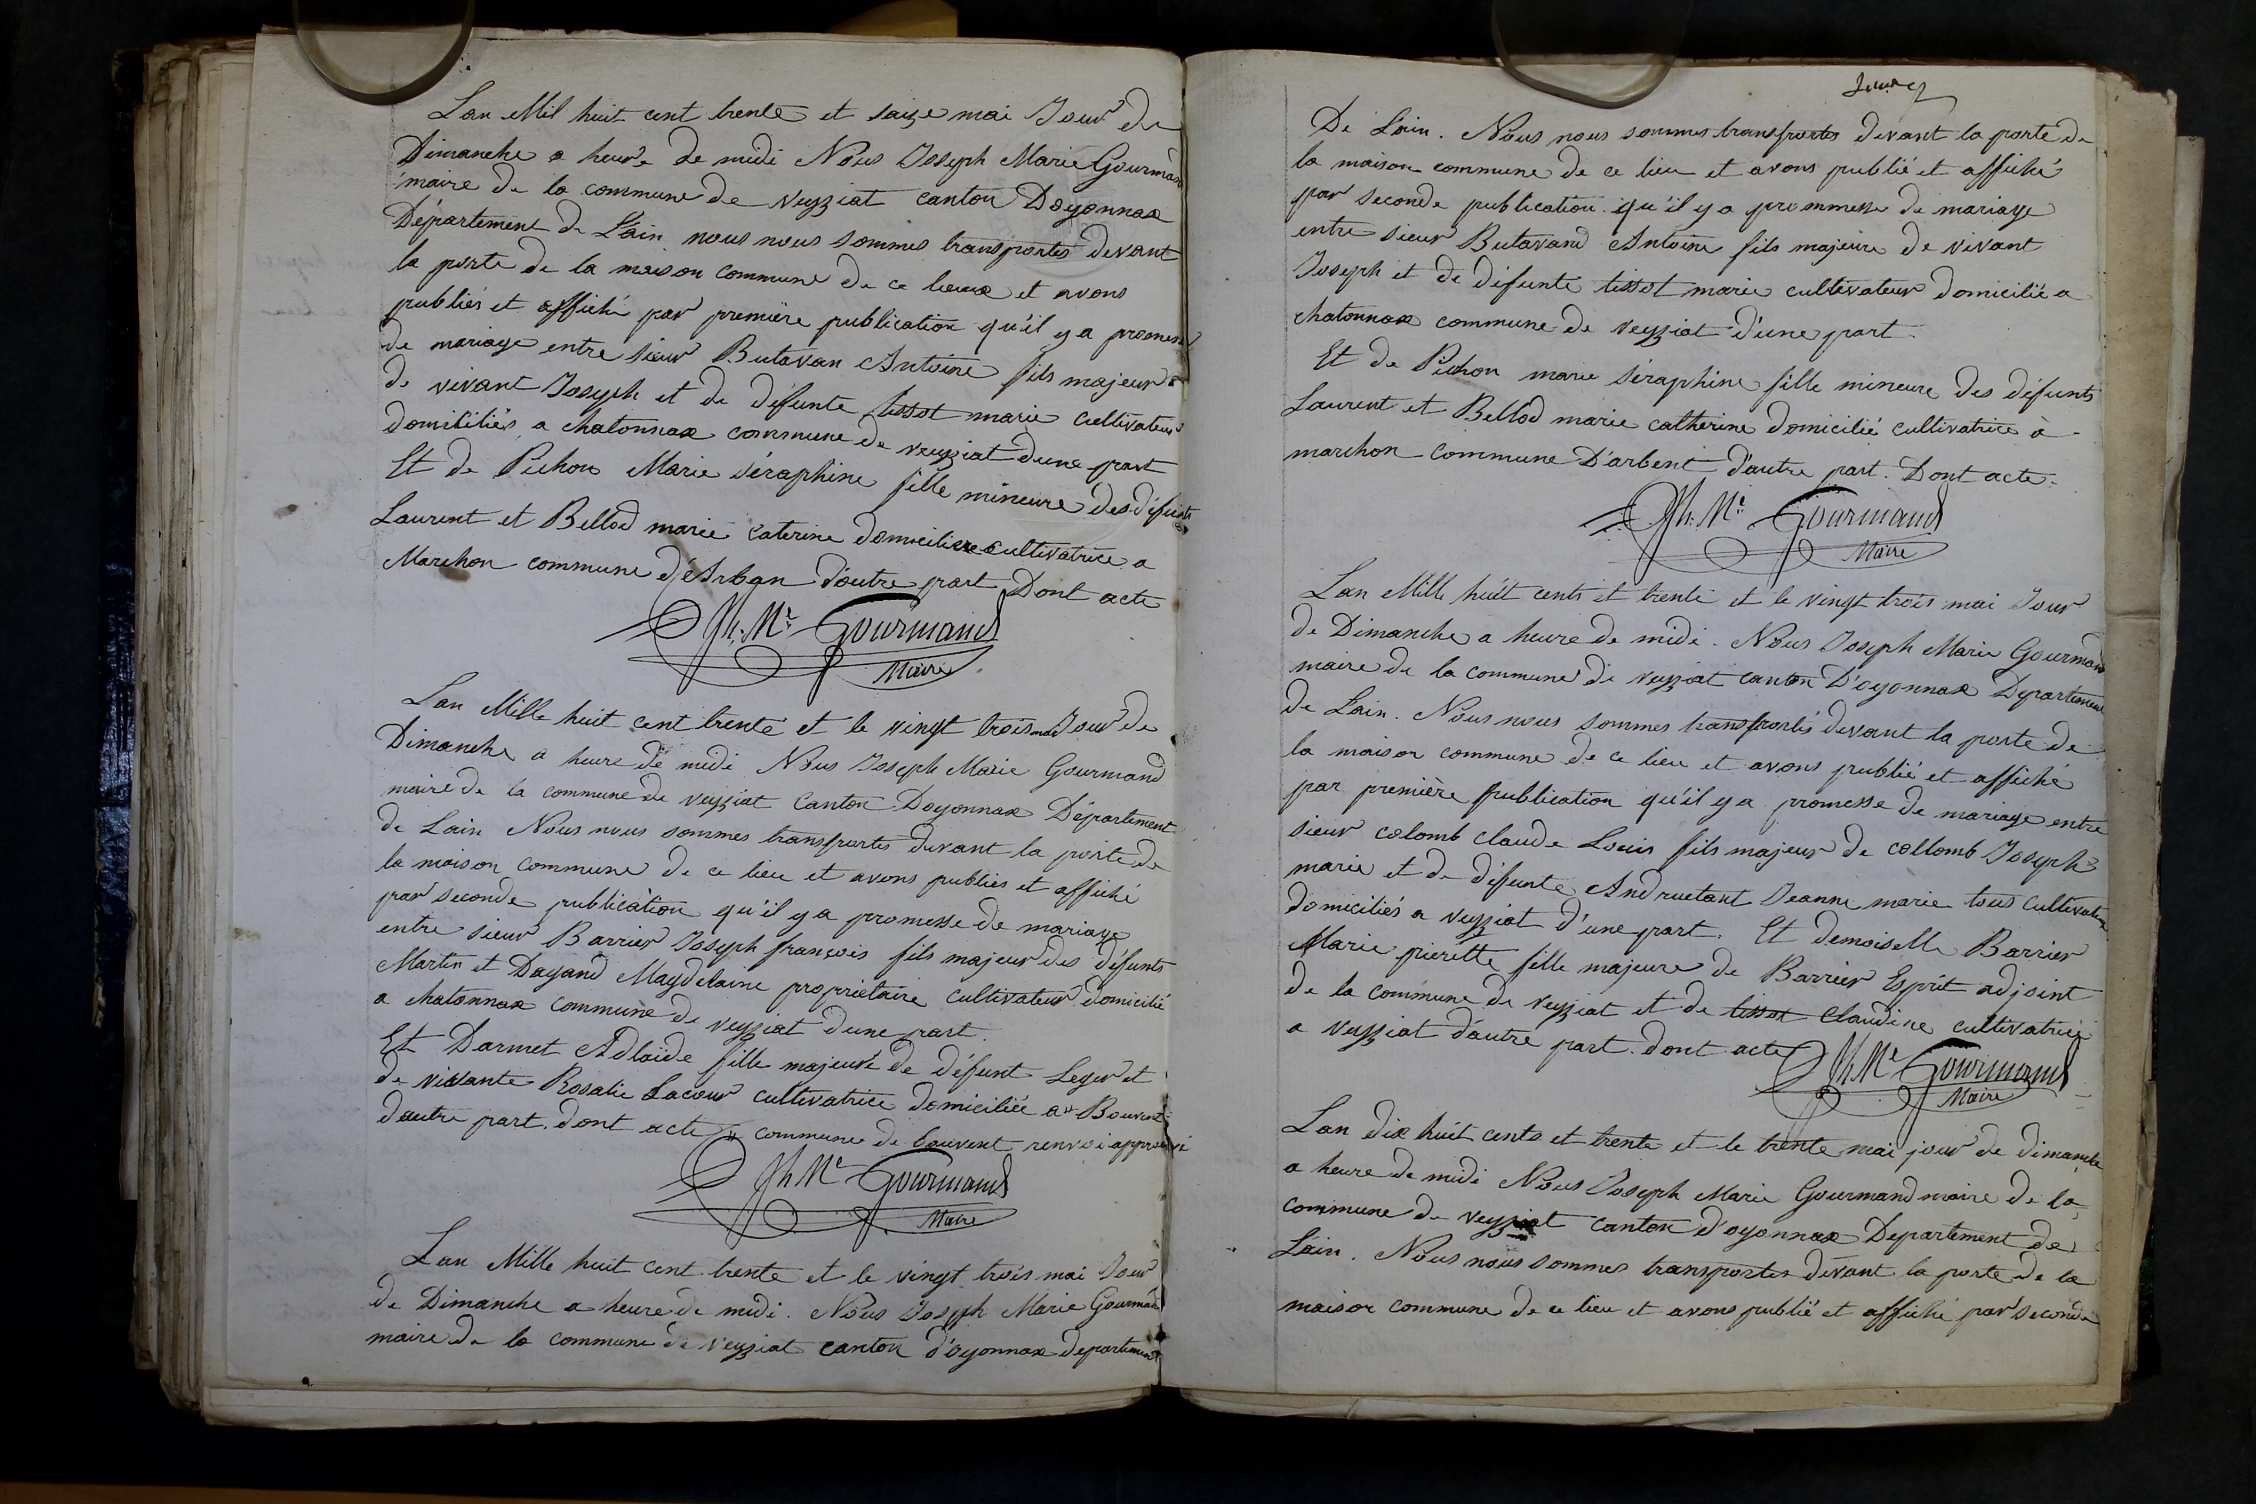 Lan Mil huit cent trente et saize mai Jour de
Dimanche a heure de midi Nous Joseph Marie Gourmand
maire de la commune de veyziat canton Doyonnax
Département de Lain nous nous sommes transportés devant
la porte de la maison commune de ce lieux et avons
publiés et affiché par première publication qu'il y a promesse
de mariage entre sieur Butavan Antoine fils majeur
de vivant Joseph et de défunte tissot marie cultivateurs
domiciliés a chatonnax commune de veyziat dune part
Et de Pichon Marie séraphine fille mineure des défunts
Laurent et Bellod marie caterine domiciliée cultivatrice a
Marchon commune d'Arban d'autre part Dont acte
Jh. Me Gourmand
Maire
Lan Mille huit cent trente et le vingt trois mai Jour de
Dimanche a heure de midi Nous Joseph Marie Gourmand
maire de la commune de veyziat Canton Doyonnax Département
de Lain Nous nous sommes transportés devant la porte de
la maison commune de ce lieu et avons publiés et affiché
par seconde publication qu'il y a promesse de mariage
entre sieur Barrier Joseph françois fils majeur des défunts
Martin et Dagand Magdelaine propriétaire cultivateur domicilié
a chatonnax commune de veyziat dune part.
Et Darmet Adlaïde fille majeure de défunt Leger et
de vivante Rosalie Lacour cultivatrice domiciliée a Bouvent
dautre part. dont acte commune de bouvent renvoi approuvé
Jh Me Gourmand
Maire
Lan Mille huit cent trente et le vingt trois mai Jour
de Dimanche a heure de midi. Nous Joseph Marie Gourmand
maire de la commune de Veyziat canton d'oyonnax departement
De Lain. Nous nous sommes transportés devant la porte de
la maison commune de ce lieu et avons publié et affiché
par seconde publication qu'il y a prommesse de mariage
entre sieur Butavand Antoine fils majeure de vivant
Joseph et de défunte tissot marie cultivateur domicilié a
chatonnax commune de veyziat d'une part.
Et de Pichon marie séraphine fille mineure des défunts
Laurent et Bellod marie catherine domicilié cultivatrice à
marchon commune D'arbent d'autre part. Dont acte.
Jh. Me Gourmand
Maire
Lan Mille huit cents et trente et le vingt trois mai Jour
de Dimanche a heure de midi. Nous Joseph Marie Gourmand
maire de la commune de veyziat canton D'oyonnax Departement
de Lain. Nous nous sommes transportés devant la porte de
la maison commune de ce lieu et avons publié et affiché
par première publication qu'il y a promesse de mariage entre
sieur colomb claude Louis fils majeur de collomb Joseph
marie et de défunte Andruetant Jeanne marie tous cultivateur
domiciliés a veyziat d'une part. Et demoiselle Barrier
Marie pierette fille majeure de Barrier Esprit adjoint
de la commune de veyziat et de tissot claudine cultivatrice
a veyziat d'autre part. dont acte
Jh Me Gourmand
Maire
Lan dix huit cents et trente et le trente mai jour de dimanche
a heure de midi Nous Joseph Marie Gourmand maire de la
commune de veyziat canton d'oyonnax Departement de
Lain. Nous nous sommes transportés devant la porte de la
maison commune de ce lieu et avons publié et affiché par seconde